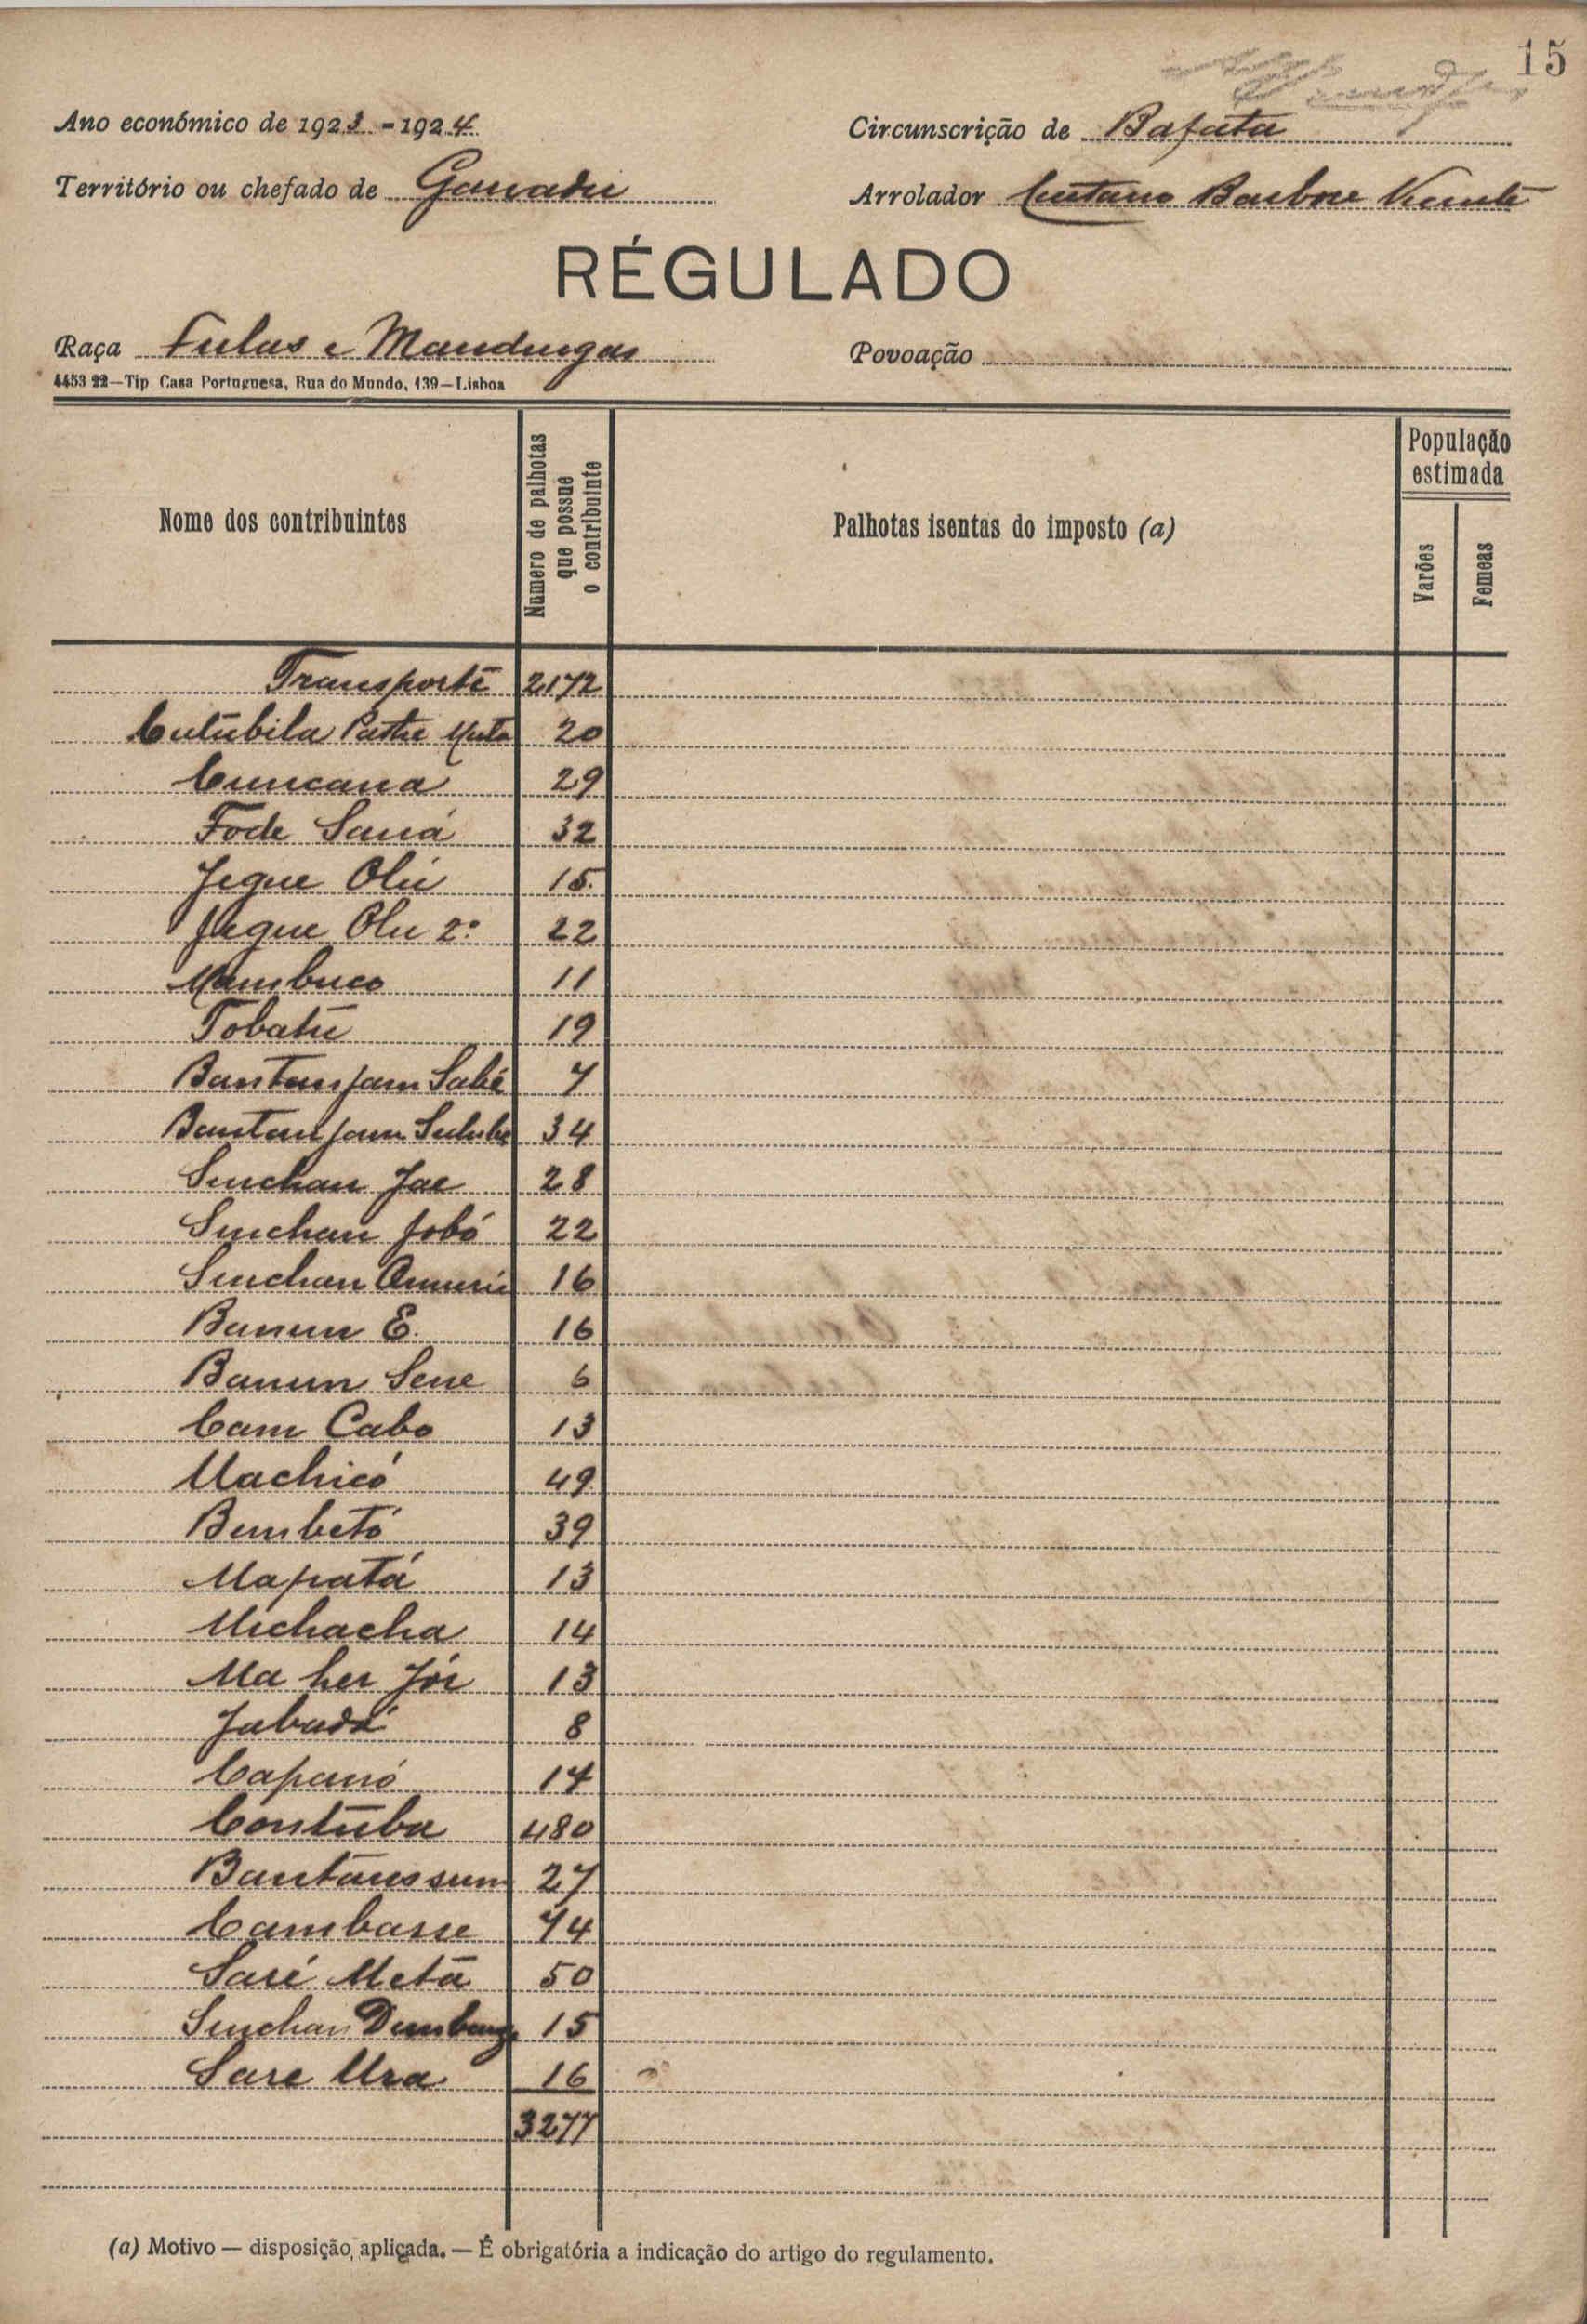 15
Ano económico de 1923-1924
Circunscrição de Bafata
Território ou chefado de Ganadu
Arrolador Caetano Barbosa Vicente
RÉGULADO
Raça Fulas e Mandingas
Povoação
4453 22—Tip Casa Portuguesa, Rua do Mundo, 139—Lisboa
Nome dos contribuintes
Número de palhotas que possue o contribuinte
Palhotas isentas do imposto (a)
População estimada
Varões
Femeas
Transporte 2172
Cutubila 20
Cuncana 29
Fode Saná 32
Jegue Olú 15
Jegue Olu 2º 22
Mambuco 11
Tobatú 19
Bantanjam Sabé 7
Bantanjam 34
Sinchan Jae 28
Sinchan Jobó 22
Sinchan 16
Banun E. 16
Banun Sene 6
Cam Cabo 13
Machicó 49
Bembetó 39
Mapatá 13
Michacha 14
Ma her Jór 13
Jabudá 8
Capanó 14
Contuba 480
Bantanssum 27
Cambasse 74
Saré Metá 50
Sinchan 15
Sare Ura 16
3277
(a) Motivo — disposição, aplicada. — É obrigatória a indicação do artigo do regulamento.